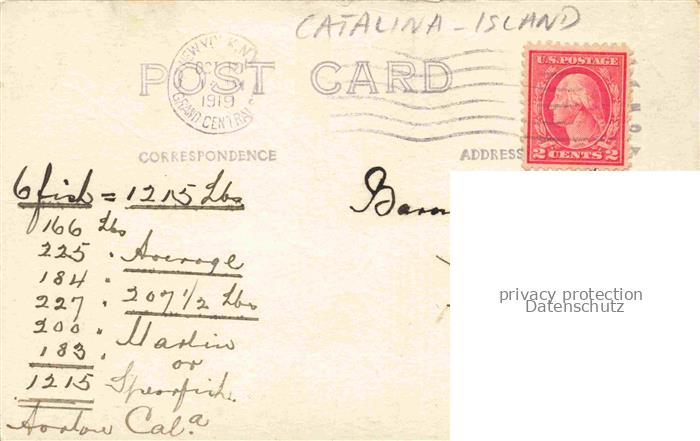 CATALINA-ISLAND
NEW YORK, N.Y.
GRAND CENTRAL
1919
POST CARD
U.S. POSTAGE
2 CENTS 2
CORRESPONDENCE
ADDRESS
6 fish = 1215 Lbs
166 Lbs
225 "
184 "
227 "
200 "
183 "
1215
Average
207 1/2 Lbs
Marlin
or
Spearfish.
Cal.a
privacy protection
Datenschutz